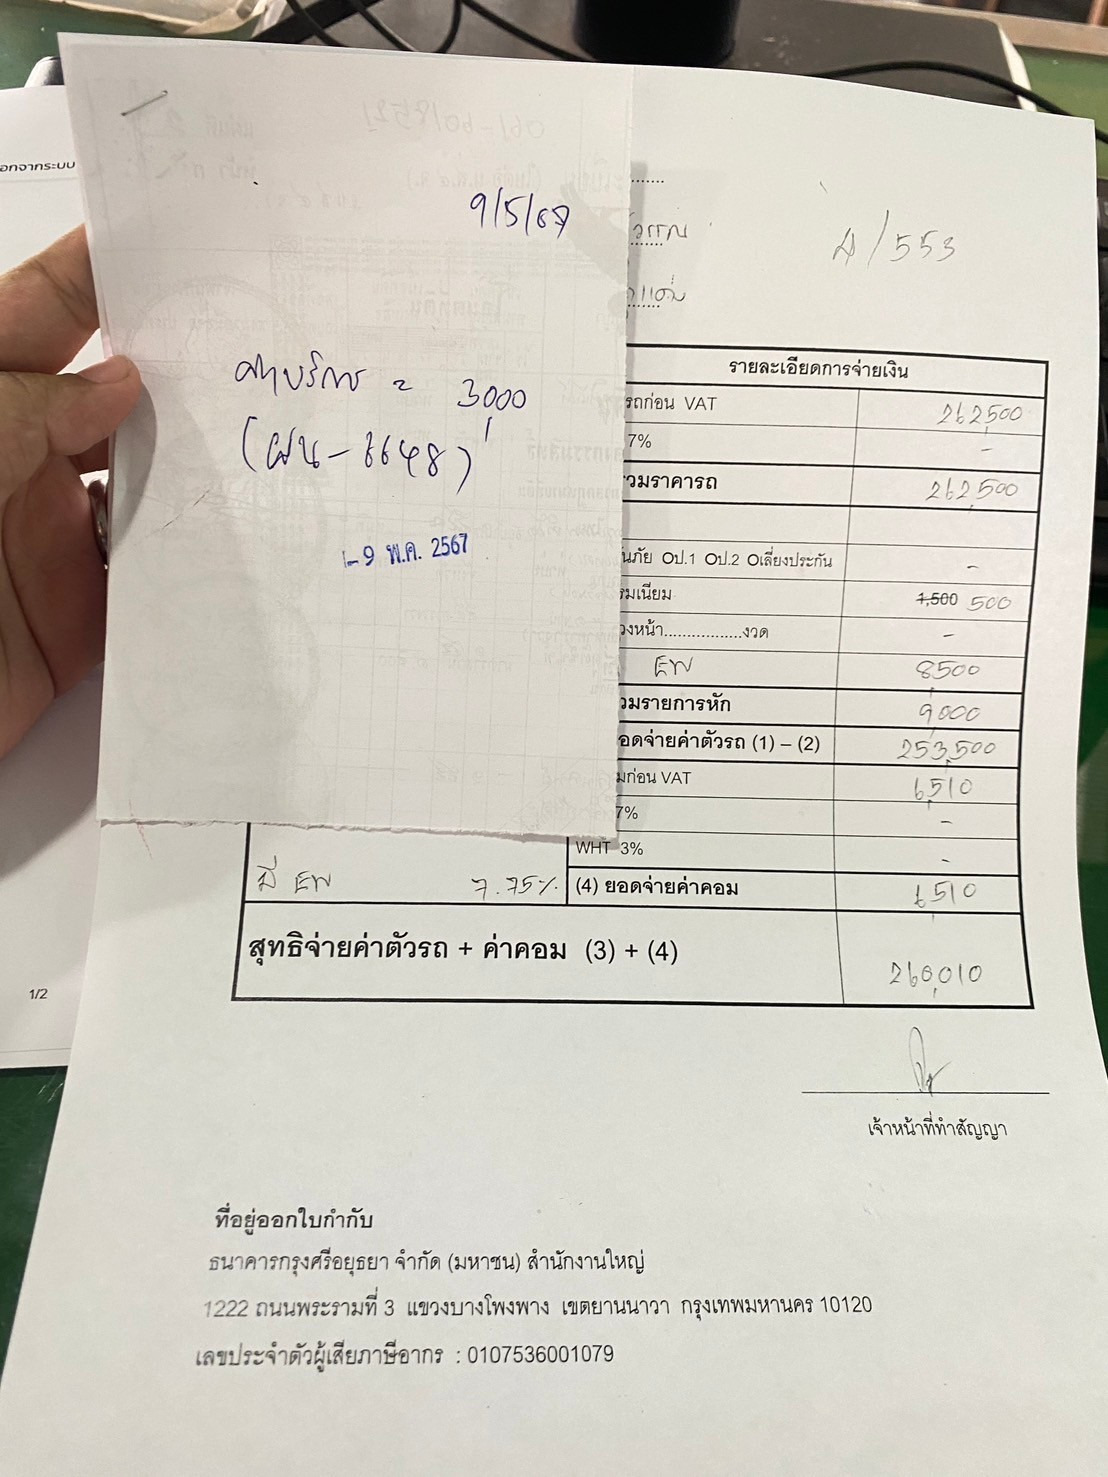 อกจากระบบ
1/2
9/5/67
ค่าบริการ = 3,000
(ฝน-6648)
- 9 พ.ค. 2567
4/553
รายละเอียดการจ่ายเงิน
รถก่อน VAT 262,500
7% -
วมราคารถ 262,500
นภัย Oป.1 Oป.2 Oเลี่ยงประกัน -
รมเนียม 1,500 500
วงหน้า.................งวด -
EW 8500
วมรายการหัก 9,000
อดจ่ายค่าตัวรถ (1) – (2) 253,500
มก่อน VAT 6,510
7% -
WHT 3% -
มี EW 7.75% (4) ยอดจ่ายค่าคอม 6,510
สุทธิจ่ายค่าตัวรถ + ค่าคอม (3) + (4) 260,010
เจ้าหน้าที่ทำสัญญา
ที่อยู่ออกใบกำกับ
ธนาคารกรุงศรีอยุธยา จำกัด (มหาชน) สำนักงานใหญ่
1222 ถนนพระรามที่ 3 แขวงบางโพงพาง เขตยานนาวา กรุงเทพมหานคร 10120
เลขประจำตัวผู้เสียภาษีอากร : 0107536001079